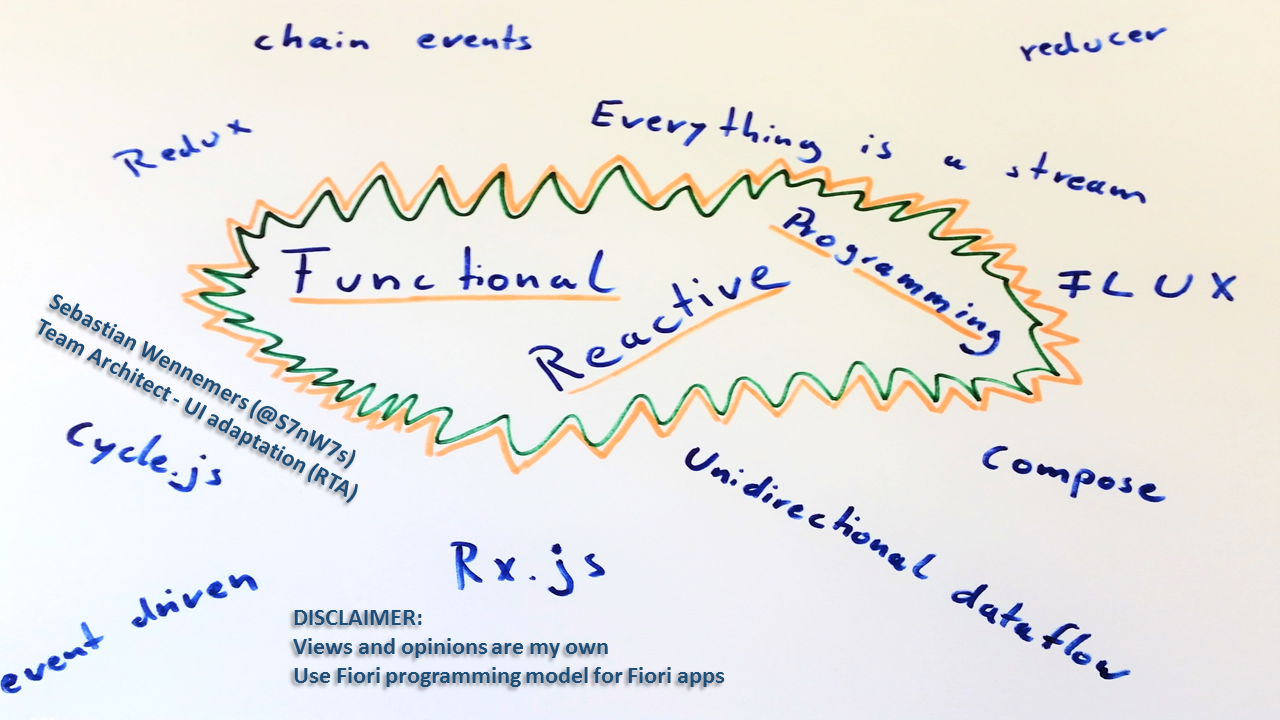 chain events
reducer
Redux
Everything is a stream
Functional
Reactive
Programming
FLUX
Sebastian Wennemers (@S7nW7s)
Team Architect - UI adaptation (RTA)
Cycle.js
Compose
Unidirectional dataflow
Rx.js
event driven
DISCLAIMER:
Views and opinions are my own
Use Fiori programming model for Fiori apps